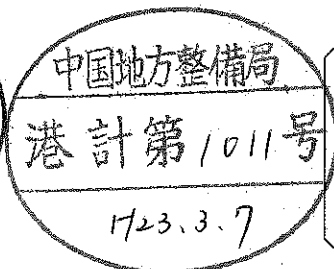 中国地方整備局
港計第1011号
H23.3.7